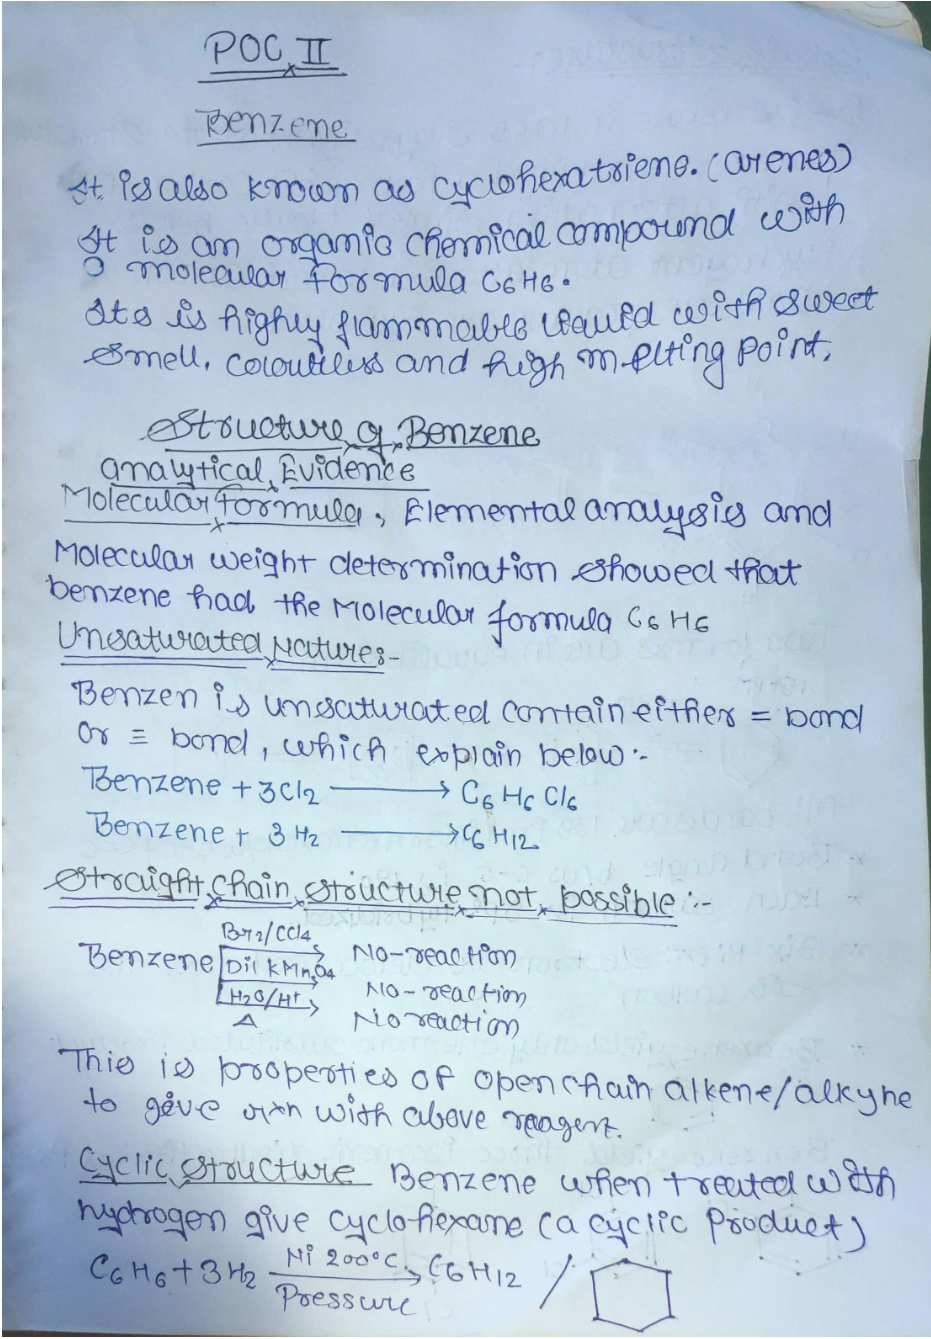 POC II
Benzene
It is also known as cyclohexatriene. (arenes)
It is an organic chemical compound with
molecular formula C6H6.
Its is highly flammable liquid with sweet
smell, colourless and high melting point.
Structure of Benzene
analytical Evidence
Molecular formula, Elemental analysis and
Molecular weight determination showed that
benzene had the Molecular formula C6H6
Unsaturated Nature:-
Benzen is unsaturated contain either = bond
or ≡ bond, which explain below:-
Benzene + 3Cl2 → C6H6Cl6
Benzene + 3H2 → C6H12
Straight chain structure not possible:-
Br2/CCl4
Benzene Dil KMnO4 No-reaction
H2O/H+ No-reaction
Δ No reaction
This is properties of open chain alkene/alkyne
to give rxn with above reagent.
Cyclic structure Benzene when treated with
hydrogen give cyclohexane (a cyclic Product)
C6H6 + 3H2 Ni 200°C → C6H12 /
Pressure